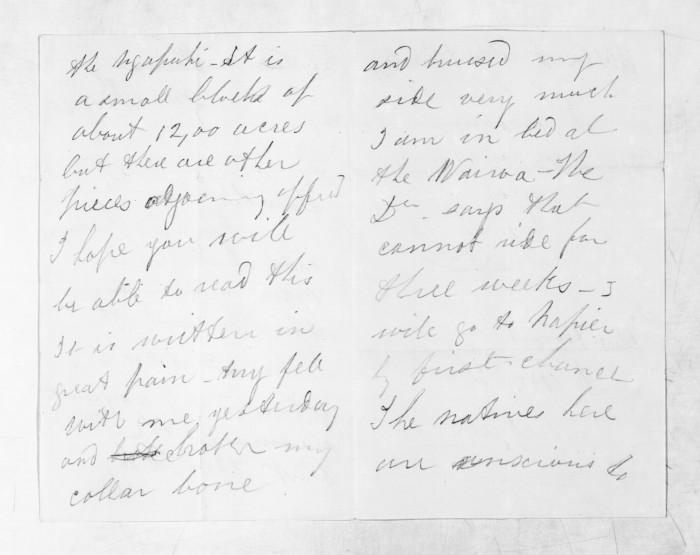 the Ngapuhi - It is
a small blocks of
about 12,00 acres
but there are other
pieces adjoining offred
I hope you will
be able to read this
It is written in
great pain - fell
with me yesterday
and broken my
collar bone
and brused my
side very much
I am in bed at
the Wairoa - The
Dr. says that
cannot ride for
three weeks - I
will go to Napier
by first chance
The natives here
are to